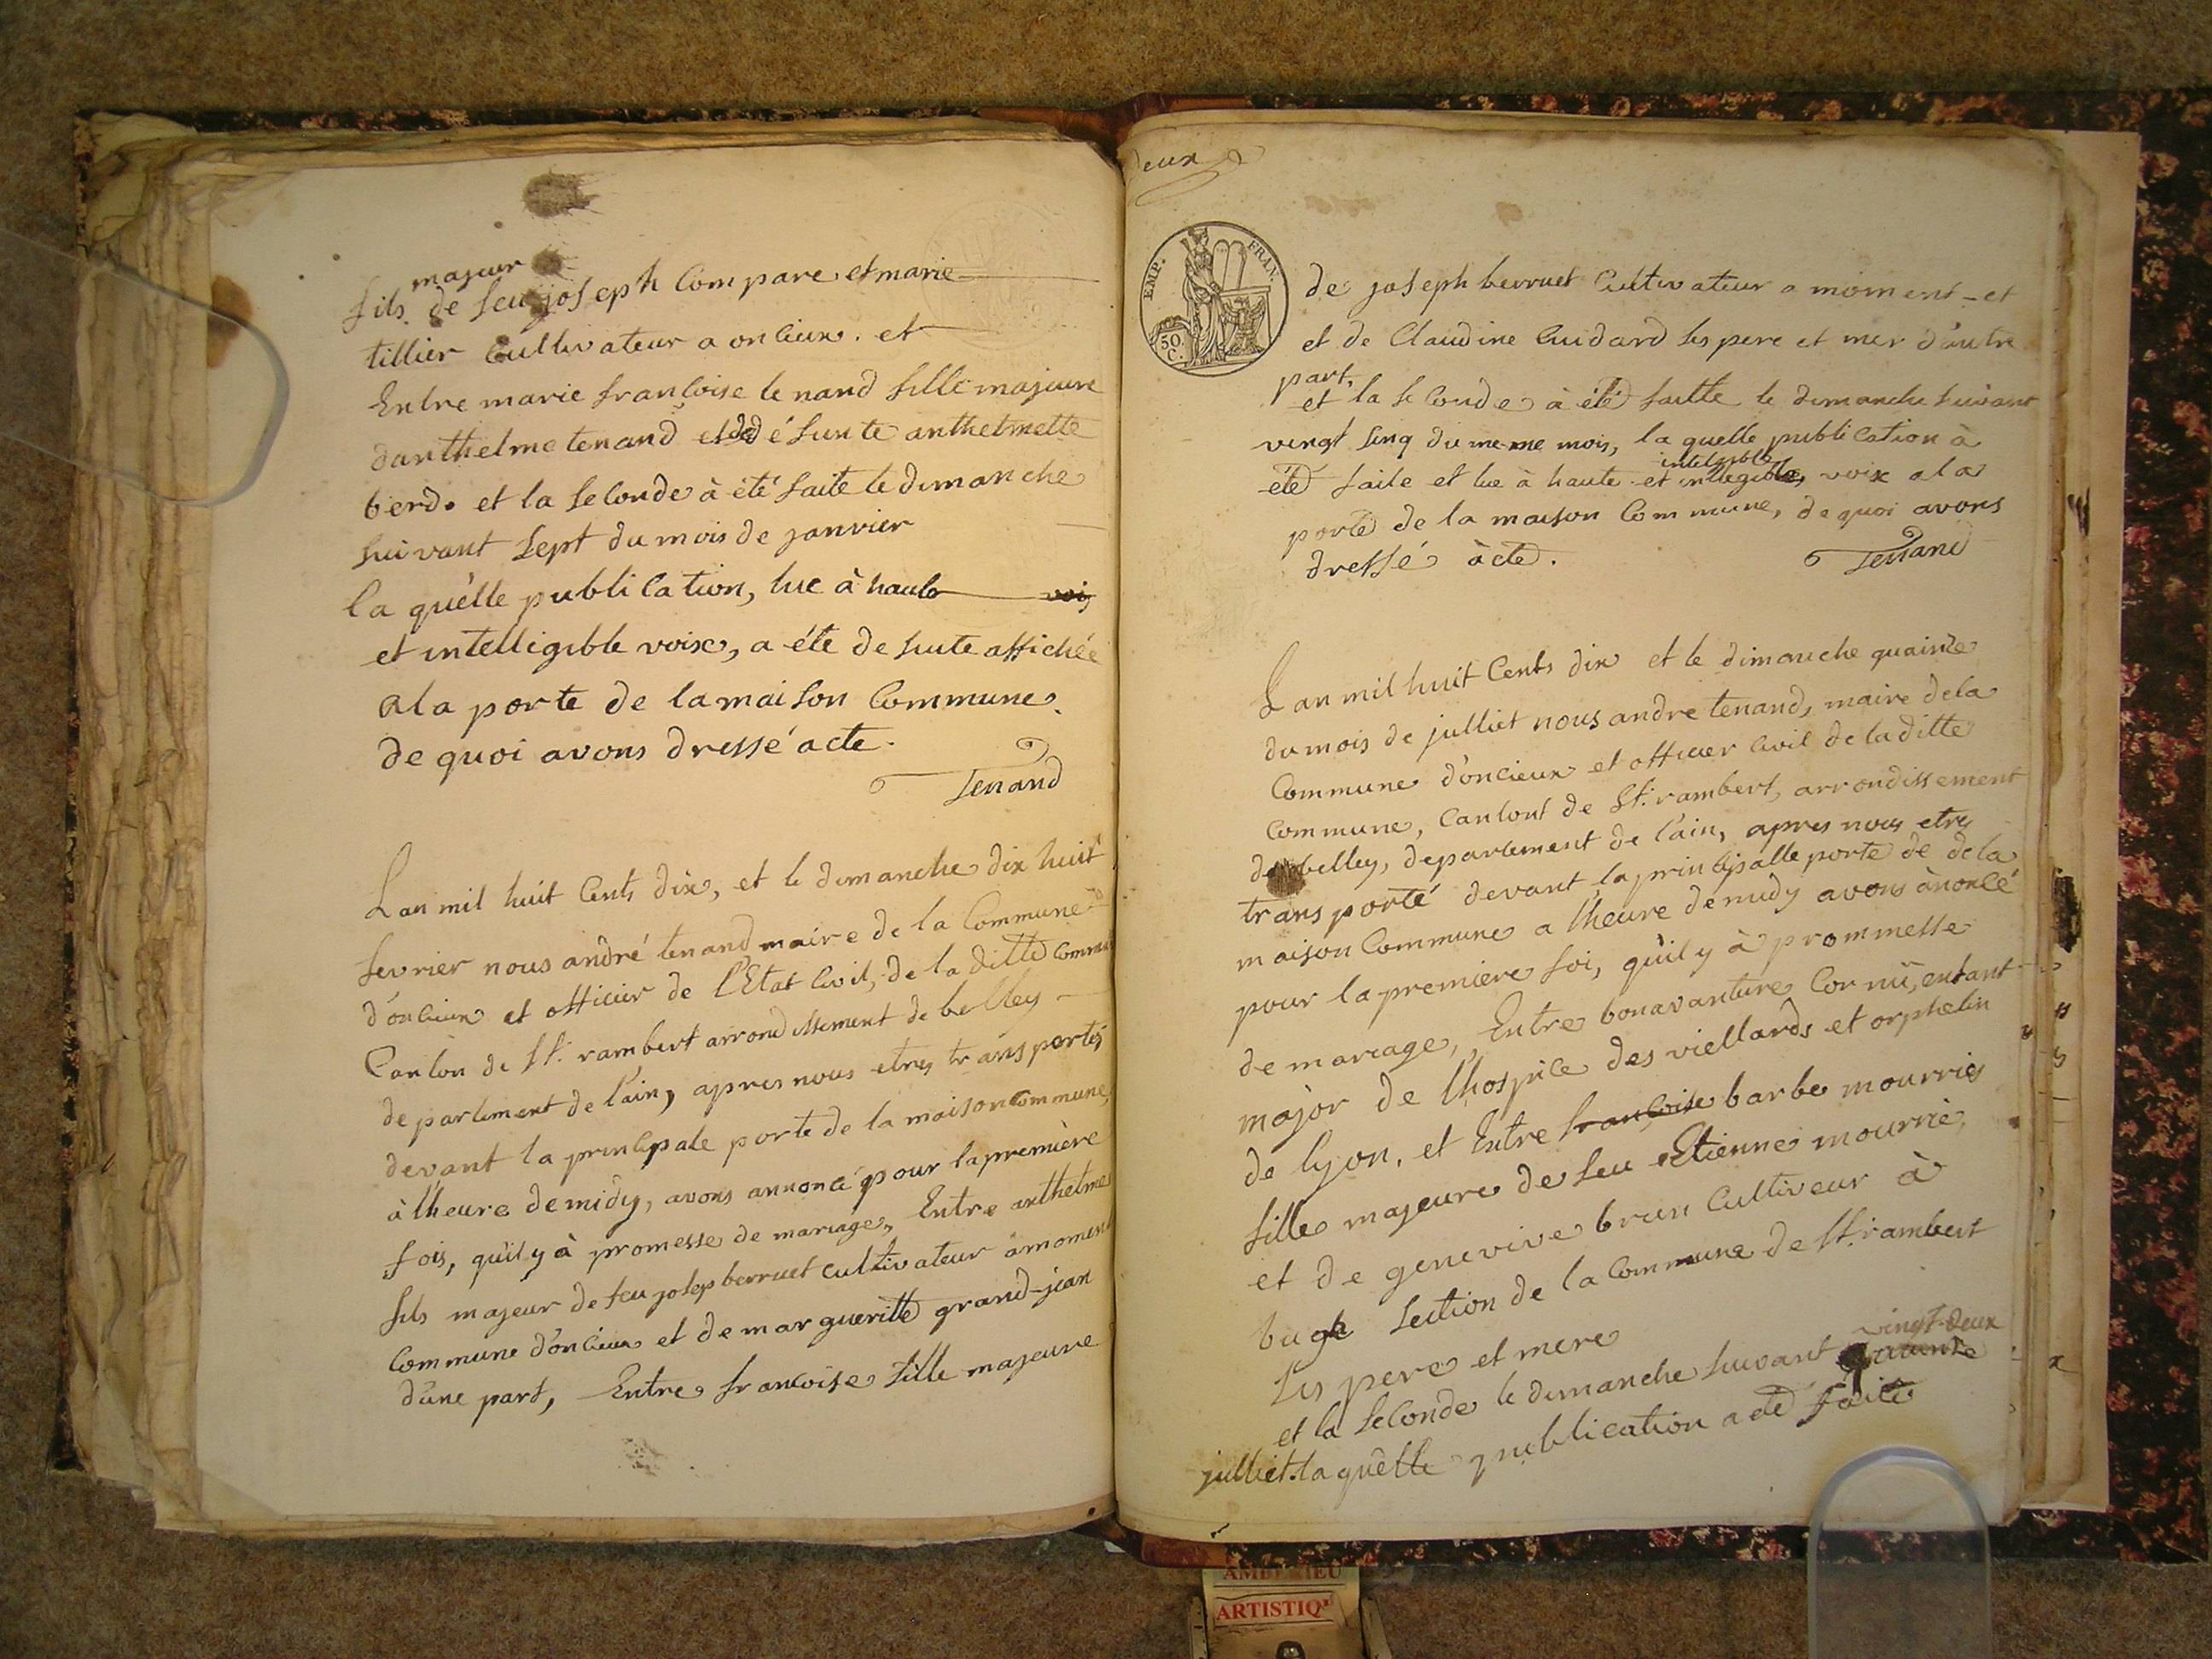 majeur
fils de feu joseph Compare et marie
tillier Cultivateur a oncieux. et
Entre marie francoise tenand fille majeure
danthelme tenand et de défunte anthelmette
berd. et la seconde à été faite le dimanche
suivant sept du mois de janvier
la quèlle publication, lue à haute voix
et intelligible voix, a éte de suite affichée
a la porte de la maison Commune.
de quoi avons dressé acte.
Tenand
Lan mil huit Cents dix, et le dimanche dix huit
fevrier nous andré tenand maire de la Commune
d'oncieux et officier de l'Etat Civil, de la ditte Commu
Canton de St. rambert arrondissement de belley
departement de l'ain, apres nous etres transportés
devant la principale porte de la maison commune,
à lheure de midy, avons annoncé pour la première
fois, qu'il y à promesse de mariage, Entre anthelme
fils majeur de feu josep berruet cultivateur a moment
Commune d'oncieux et de margueritte grand-jean
d'une part, Entre francoise fille majeure
deux
EMP. FRAN.
50. C.
de joseph berruet Cultivateur a moment et
et de Claudine Cuidard ses pere et mer d'autre
part,
et la seconde à été faitte le dimanche suivant
vingt sinq du meme mois, la quelle publication à
intelgible
été faite et lue à haute et intlegible, voix a la
porte de la maison Commune, de quoi avons
dressé àcte.
Tenand
Lan mil huit Cents dix et le dimanche quainze
du mois de julliet nous andre tenand, maire de la
Commune d'oncieux et officier Civil de la ditte
Commune, Cantont de St. rambert, arrondissement
de belley, departement de l'ain, apres nous etres
transporté devant la principalle porte de de la
maison Commune a lheure de midy avons ànoncé
pour la premiere foi, qu'il y à prommesse
de mariage, Entre bonavanture Cornu, enfant
major de lhospice des viellards et orphelin
de lyon, et Entre francoise barbe mourrier
fille majeure de feu Etienne mourrié,
et de genevive brun Cultiveur à
bugh section de la Commune de St. rambert
ses pere et mere
vingt-deux
et la seconde le dimanche suivant quainze
julliet. la quêlle publication a été faite
AMBERIEU
ARTISTIQU